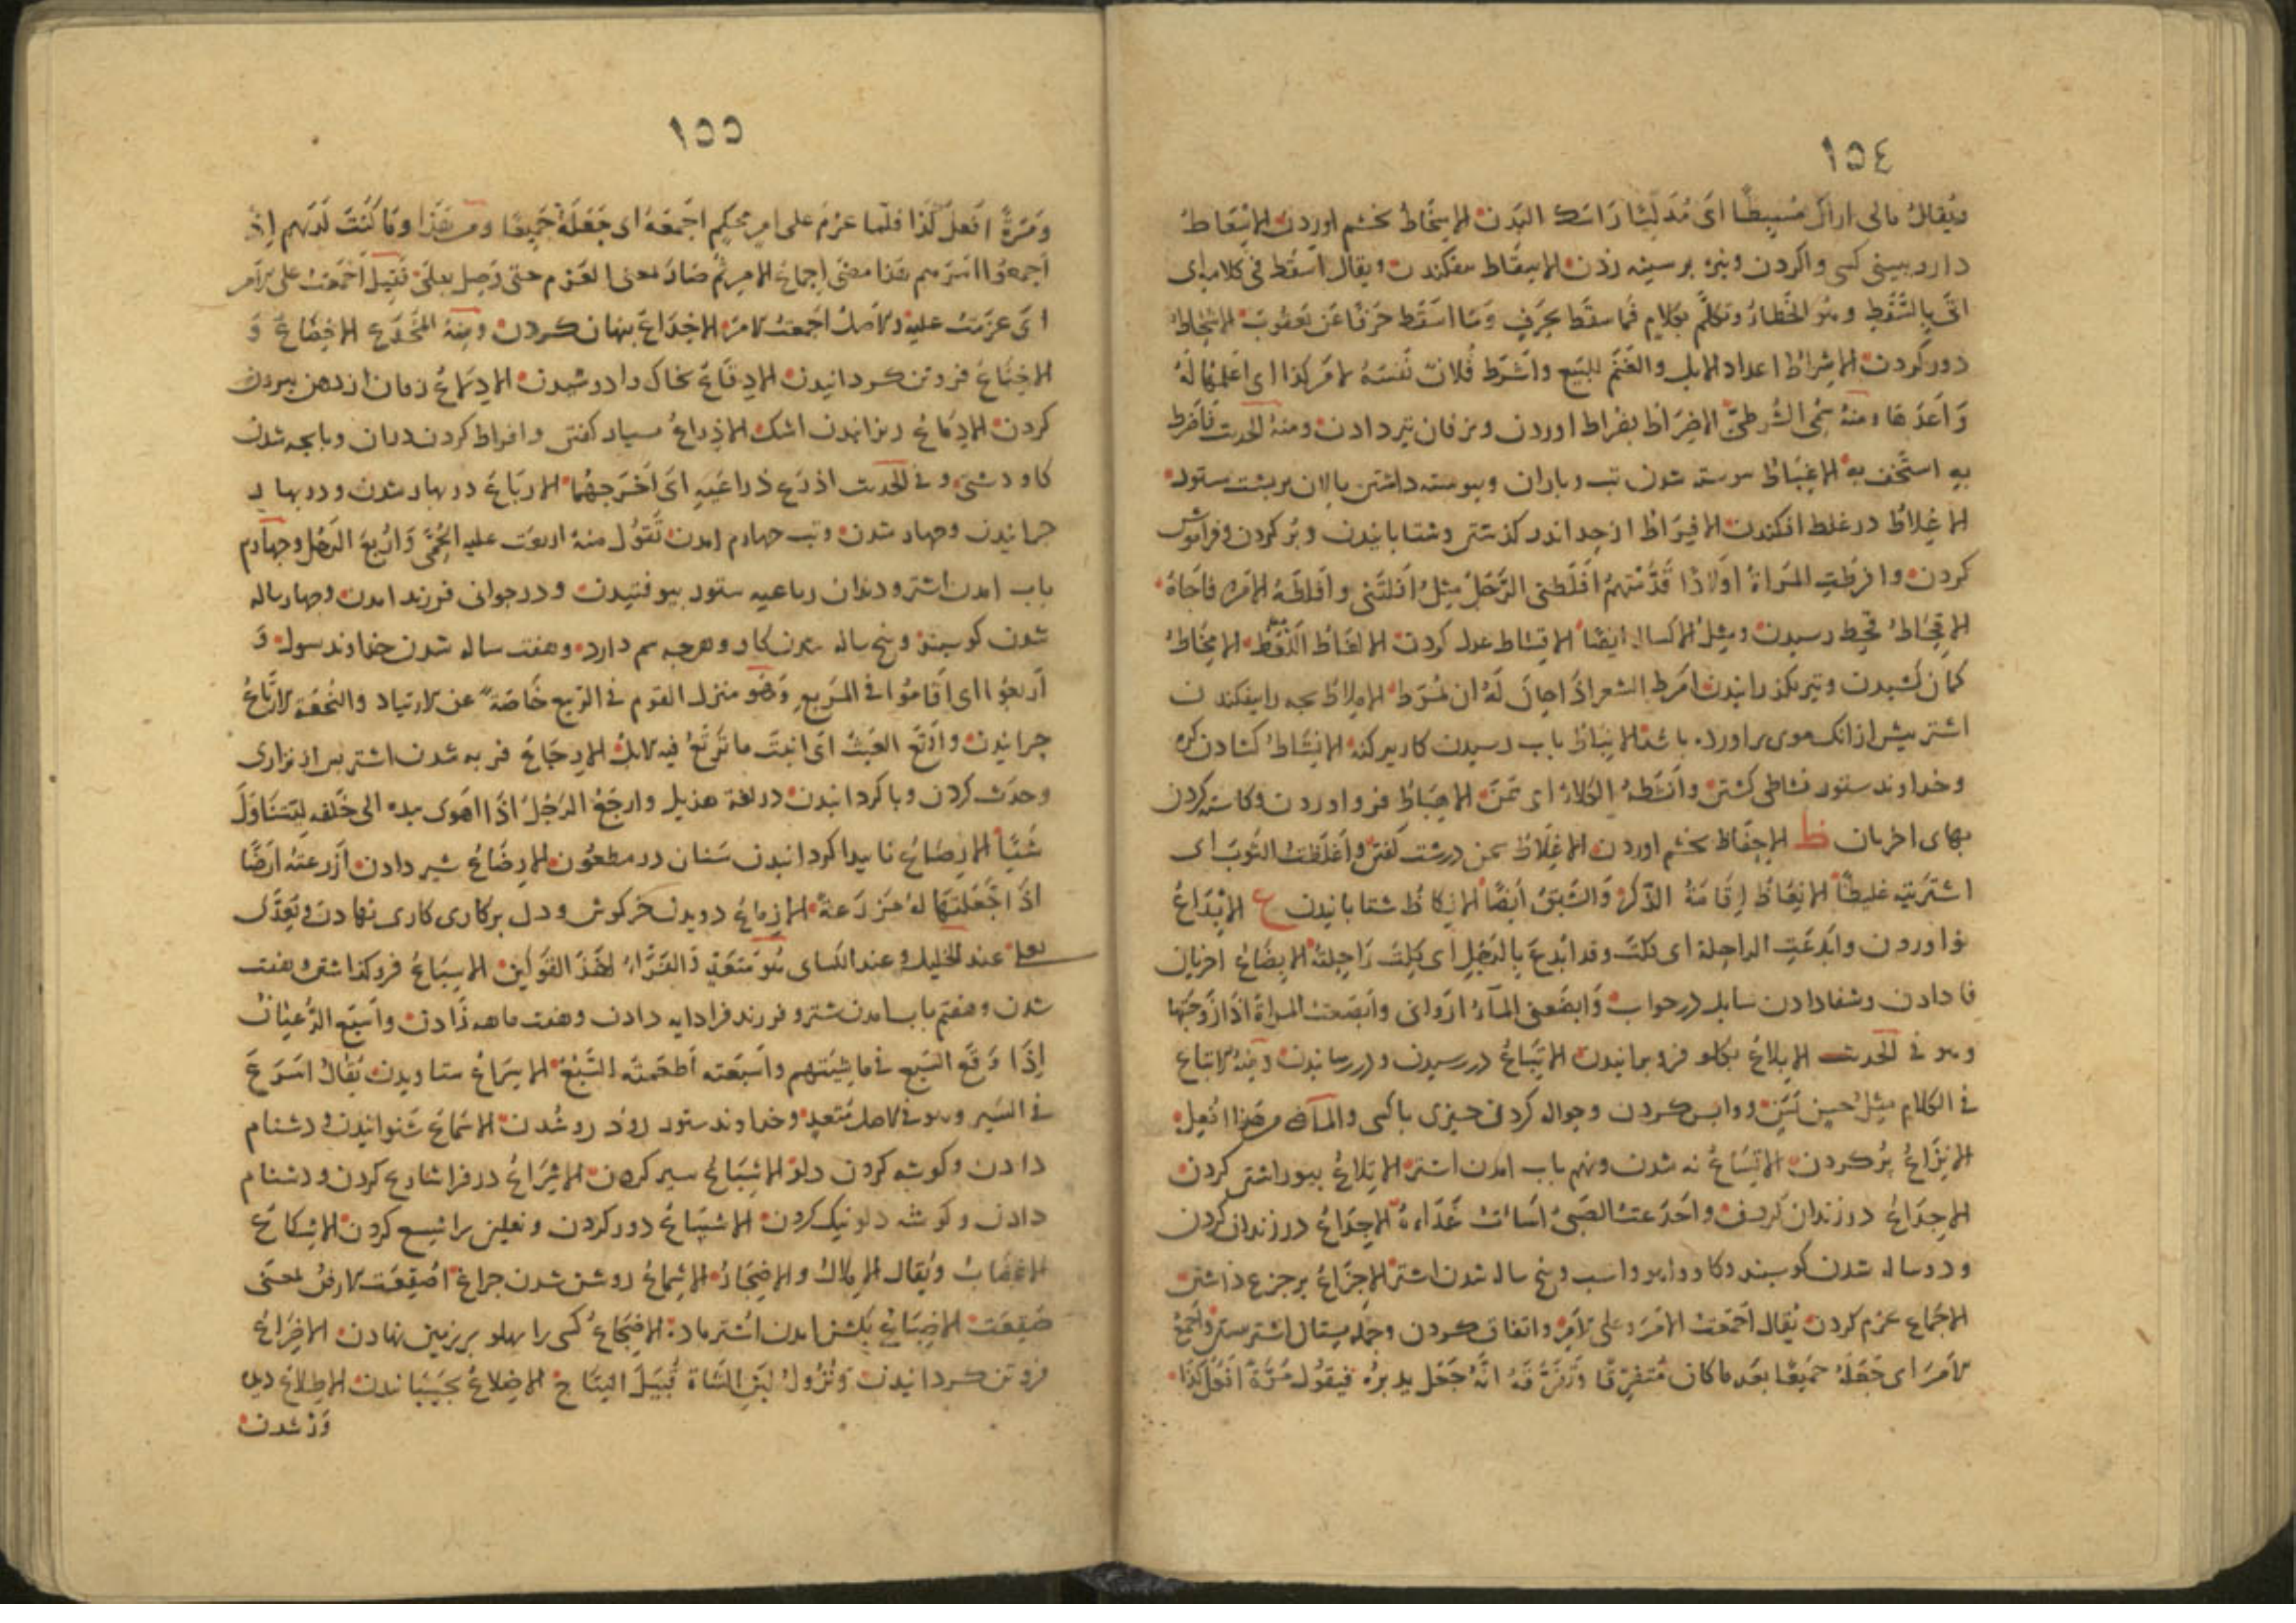 ١٥٤
ويقال مالى اراك مُسبِطًا اى مُدَلِّيًا رَاسَكَ البَدَن الاِسْخَاطُ بخشم اوردن الاِسْعَاطُ
دارو ببينى كسى واكردن ونيزه برسينه زدن الاِسقَاط بيفكندن ويقال اسقَط فى كلامه اى
اتَى بِالسَّقَطِ وهُوَ الخَطاءُ وتكلَّم بكلامٍ فَما سقَط بحَرفٍ وَمَا اسقَط حَرفًا عَن يَعقُوبَ
دور كردن الاِشراطُ اعداد الابل والغَنَم للبَيع واَشرَط فُلان نَفسَهُ لامر كذا اى اَعلمَها لَهُ
وَاَعَدَّهَا ومنهُ سُمِّى الشُرطىّ الاِضرَاطُ بضراط اوردن ومنهُ الحديث فَاَضرط
بِهِ استخَف بِهِ الاِغبَاطُ پيوسته شدن تب وباران وپيوسته داشتن پالان بر پشت ستور
الاِغلاطُ در غلط افكندن الاِفرَاطُ از حد اندر كذشتن وشتابانيدن وپُر كردن وفراموش
كردن وافرَطَتِ المَراةُ اَولادًا قَدَّمتهُم اَفلَطنى الرَّجُل مِثلُ اَفلَتَنى واَفلطَهُ الاَمر فاجَاهُ
الاِقحَاطُ قحط رسيدن ومثل الاكسال ايضًا الاِقسَاط عدل كردن الاِلغَاطُ اللَّغَط الاِمخَاطُ
كمان كشيدن وتير بكذرانيدن اَمرَط الشعر اذَا حان لَهُ ان يُمرَط الاِملاطُ بچه را بيفكندن
اشتر پيش از انك موى براورده باشد الاِنبَاطُ بآب رسيدن كاريز كنه الاِنشَاطُ كشادن كره
وخداوند ستور نشاطى كشتن واَنشَطَهُ الكلاءُ اى سَمَّن الاِهبَاطُ فرواوردن وكاسته كردن
بهاى اخريان ظ الاِحفَاظُ بخشم اوردن الاِغلَاظُ سخن درشت كفتن واَغلَظتُ الثَوبَ اى
اشتريته غليظًا الاِنعَاظُ اِقَامَةُ الذّكَر وَالشَّبَق اَيضًا الاِنكاظُ شتابانيدن ع الاِبدَاعُ
نو اوردن واَبدَعَتِ الراحلة اى كلّت وقد اُبدِعَ بالرَجُلِ اى كَلّت رَاحِلتُهُ الاِبضَاعُ اخريان
فا دادن وشفا دادن سايل در جواب وَابضَعنى المآءُ اروانى واَبضَعتُ المراةَ اذَا زوّجتُها
وهو فى الحديث الاِبلاعُ بكلو فرو برانيدن الاِتبَاعُ در رسيدن ودر رسانيدن ومنهُ الاتباع
فى الكلام مِثلُ حسن بَسَن وواپس كردن وحواله كردن چيزى باكسى والماضى من هذا اتعل
الاِترَاعُ پُر كردن الاِتسَاعُ نه شدن ونهم باب امدن اشتر الاِتلاعُ
الاِجدَاعُ در زندان كردن واَجدَعتُ الصَبىَّ اَسَاتُ غَذَاءهُ الاِجذَاعُ در زندان كردن
ودو ساله شدن كوسپند وكاو واهو واسب وپنج ساله شدن اشتر الاِجزَاعُ بر جزع داشتن
الاِجمَاع عزم كردن يُقال اَجمَعتُ الاَمرَ وعلى الاَمر واتفاق كردن وجمله پستان اشتر بستن واَجمَعَ
الاَمرَ اى جَعَلَهُ جَميعًا بعَد ما كان مُتفرّقًا وتَفَرّقهُ انّهُ جَعَل يدبّرهُ فيقُول مَرّةً اَفعَلُ كَذَا
١٥٥
وَمَرَّةً اَفعَلُ كَذَا فلَمّا عزم على امرٍ محكمٍ اجمعَهُ اى جَعَلَهُ جَميعًا ومن هَذا وَمَا كُنتَ لَدَيهِم اِذ
اَجمعوا اَمرهم هذا معنَى اِجماعُ الامر ثم صَارَ بمعنى العَزم حتى وُصِل بعَلى فقيل اَجمَعتُ على الاَمر
اى عَزَمتُ عليه والاَصل اَجمَعتُ الامر الاِخدَاعُ پنهان كردن ومِنهُ المُخدَع الاِخضَاعُ وَ
الاِخنَاعُ فروتن كردانيدن الاِدقَاعُ بخاك وادوشيدن الاِدلاعُ زبان از دهن بيرون
كردن الاِدمَاعُ ريزانيدن اشك الاِذراعُ بسيار كفتن وافراط كردن دران وبابچه شدن
كاو دشتى وفى الحديث اذرَع ذراعَيهِ اى اَخرَجهُما الاِربَاعُ در بهار شدن ودر بهار
چرانيدن وچهار شدن وتب چهارم امدن تَقُولُ منهُ اربعَت عليه الحُمّى وَاَربعَ الرَجُل وچهارم
باب امدن اشتر ودندان رباعيه ستور بيوفتيدن ودر جوانى فرزند امدن وچهار ساله
شدن كوسپند وپنج ساله شدن كاو وهرچه سم دارد وهفت ساله شدن خداوند سول وَ
اَربعُوا اى اَقَامُوا فى المَربعِ وَهُو منزل القوم فى الربيع خَاصّةً عن الارتياد والنُجعَة الارتَاعُ
چرانيدن واَرتَعَ الغَيثُ اى انبَتَ ما تَرتَعُ فيه الابل الاِرجَاعُ فربه شدن اشتر پس از نزارى
وحدث كردن وبا كردانيدن در لغة هذيل وارجَعَ الرَجُل اذَا اَهوى بيده الى خَلفه ليَتنَاوَلَ
شَيئًا الاِرصَاعُ ناپيدا كردانيدن سنان در مطعون الاِرضَاعُ شير دادن اَزرَعتُهُ ارضًا
اذَا جَعَلتَها لهُ مزرَعةً الازماعُ دويدن خركوش ودل بركارى كارى نهادن وتعدى
بعلى عند الخليل وعند الكساى هُو مُتَعَدٍّ والفَرَّاءُ الاِسبَاعُ فروكذاشتن وهفت
شدن وهفتم باب امدن شتر وفرزند فرا دايه دادن وهفت ماهه زادن واَسبَع الرُّعيَانُ
اِذَا وَقَع السَبع فى مَاشِيَتهِم واَسبَعته اَطعَمتُه السَّبُع الاِسرَاعُ شتاويدن يُقالُ اَسرَعَ
فى السَير وهو فى الاَصل مُتعدٍ وخداوند ستور رود رو شدن الاِسمَاعُ شنوانيدن ودشنام
دادن وكوشه كردن دلو الاِشبَاعُ سير كردن الاِشرَاعُ در فرا شارع كردن ودشنام
دادن وكوشه دلو نيك كردن الاِشسَاعُ دور كردن ونعلين را شسع كردن الاِشكَاعُ
الاِغضَابُ ويُقال الاِملالُ والاِضجَارُ الاِشمَاعُ روشن شدن چراغ اُصقِعَت الارض بمعنى
صُقِعَت الاِضبَاعُ بكشن امدن اُشتر ماده الاِضجَاعُ كسى را پهلو بر زمين نهادن الاِضرَاعُ
فروتن كردانيدن ونُزُولُ لبَن الشَاة قُبَيلَ النِتَاج الاِضلاعُ بچسبانيدن الاِطلاعُ ديد
وَر شدن